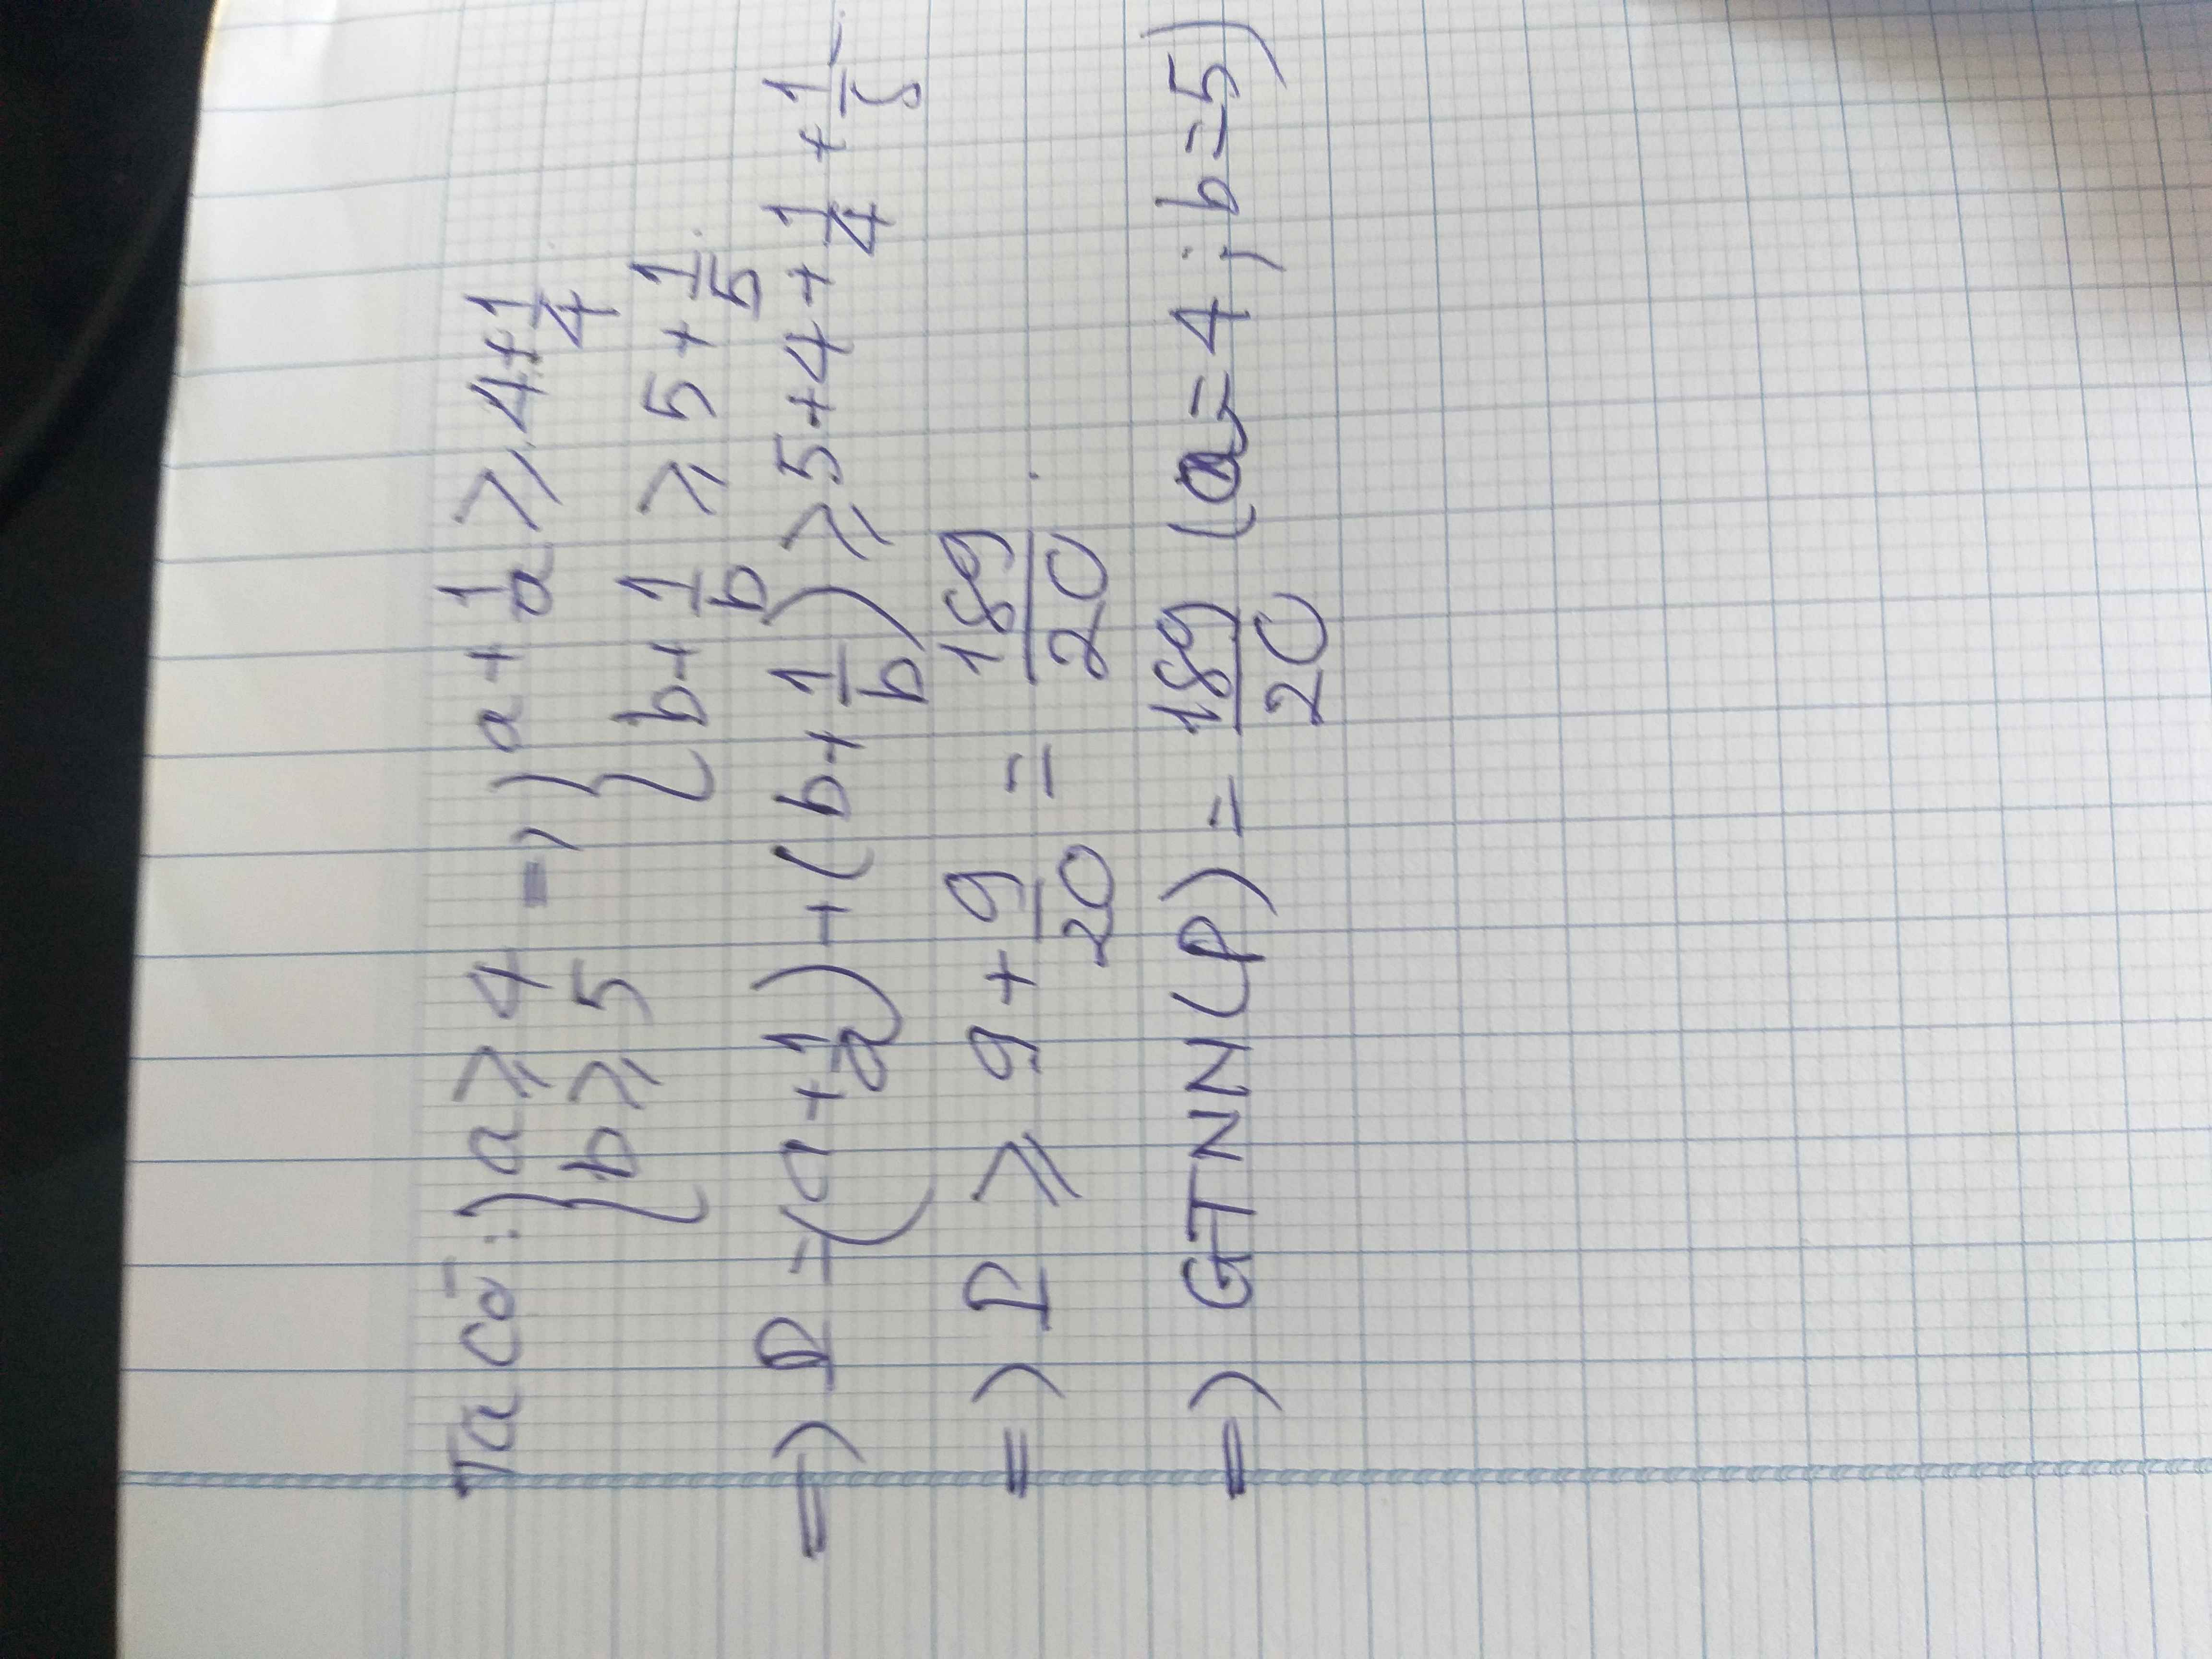 Ta có: { a ⩾ 4 => { a + 1/a ⩾ 4 + 1/4
{ b ⩾ 5 { b + 1/b ⩾ 5 + 1/5
=> P = (a + 1/a) + (b + 1/b) ⩾ 5 + 4 + 1/4 + 1/5
=> P ⩾ 9 + 9/20 = 189/20
=> GTNN(P) = 189/20 (a = 4; b = 5)